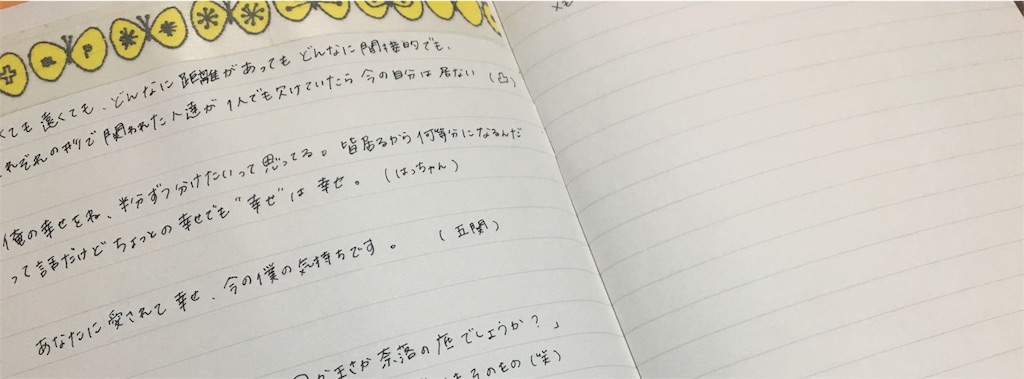 くても 遠くても、どんなに距離があっても どんなに間接的でも、
れぞれの形で関われた人達が1人でも欠けていたら 今の自分は居ない (凸)
俺の幸せをね、半分ずつ分けたいって思ってる。皆居るから何等分になるんだ
って話だけど ちょっとの幸せでも"幸せ"は 幸せ。 (はっちゃん)
あなたに愛されて幸せ、今の僕の気持ちです。 (五関)
まさか奈落の底でしょうか?」
そのもの(笑)